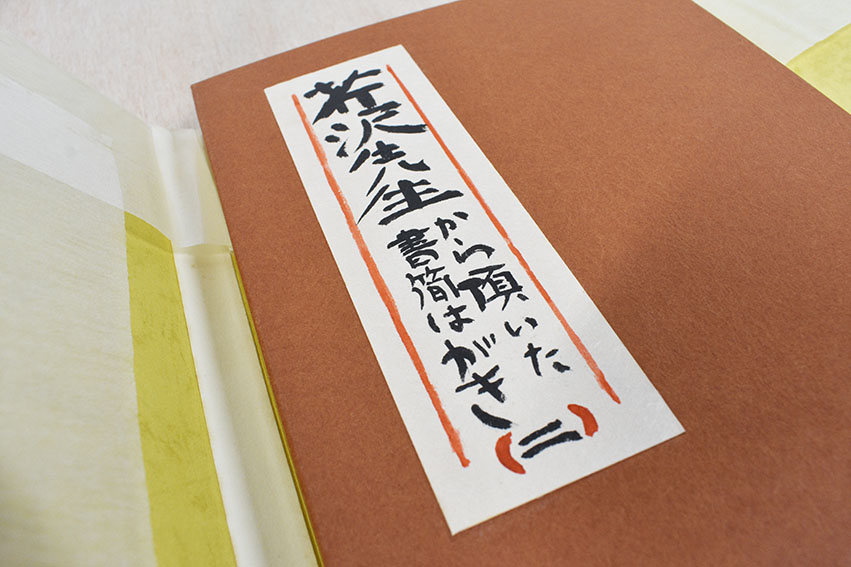 芹沢先生
から頂いた
書簡はがき
(二)